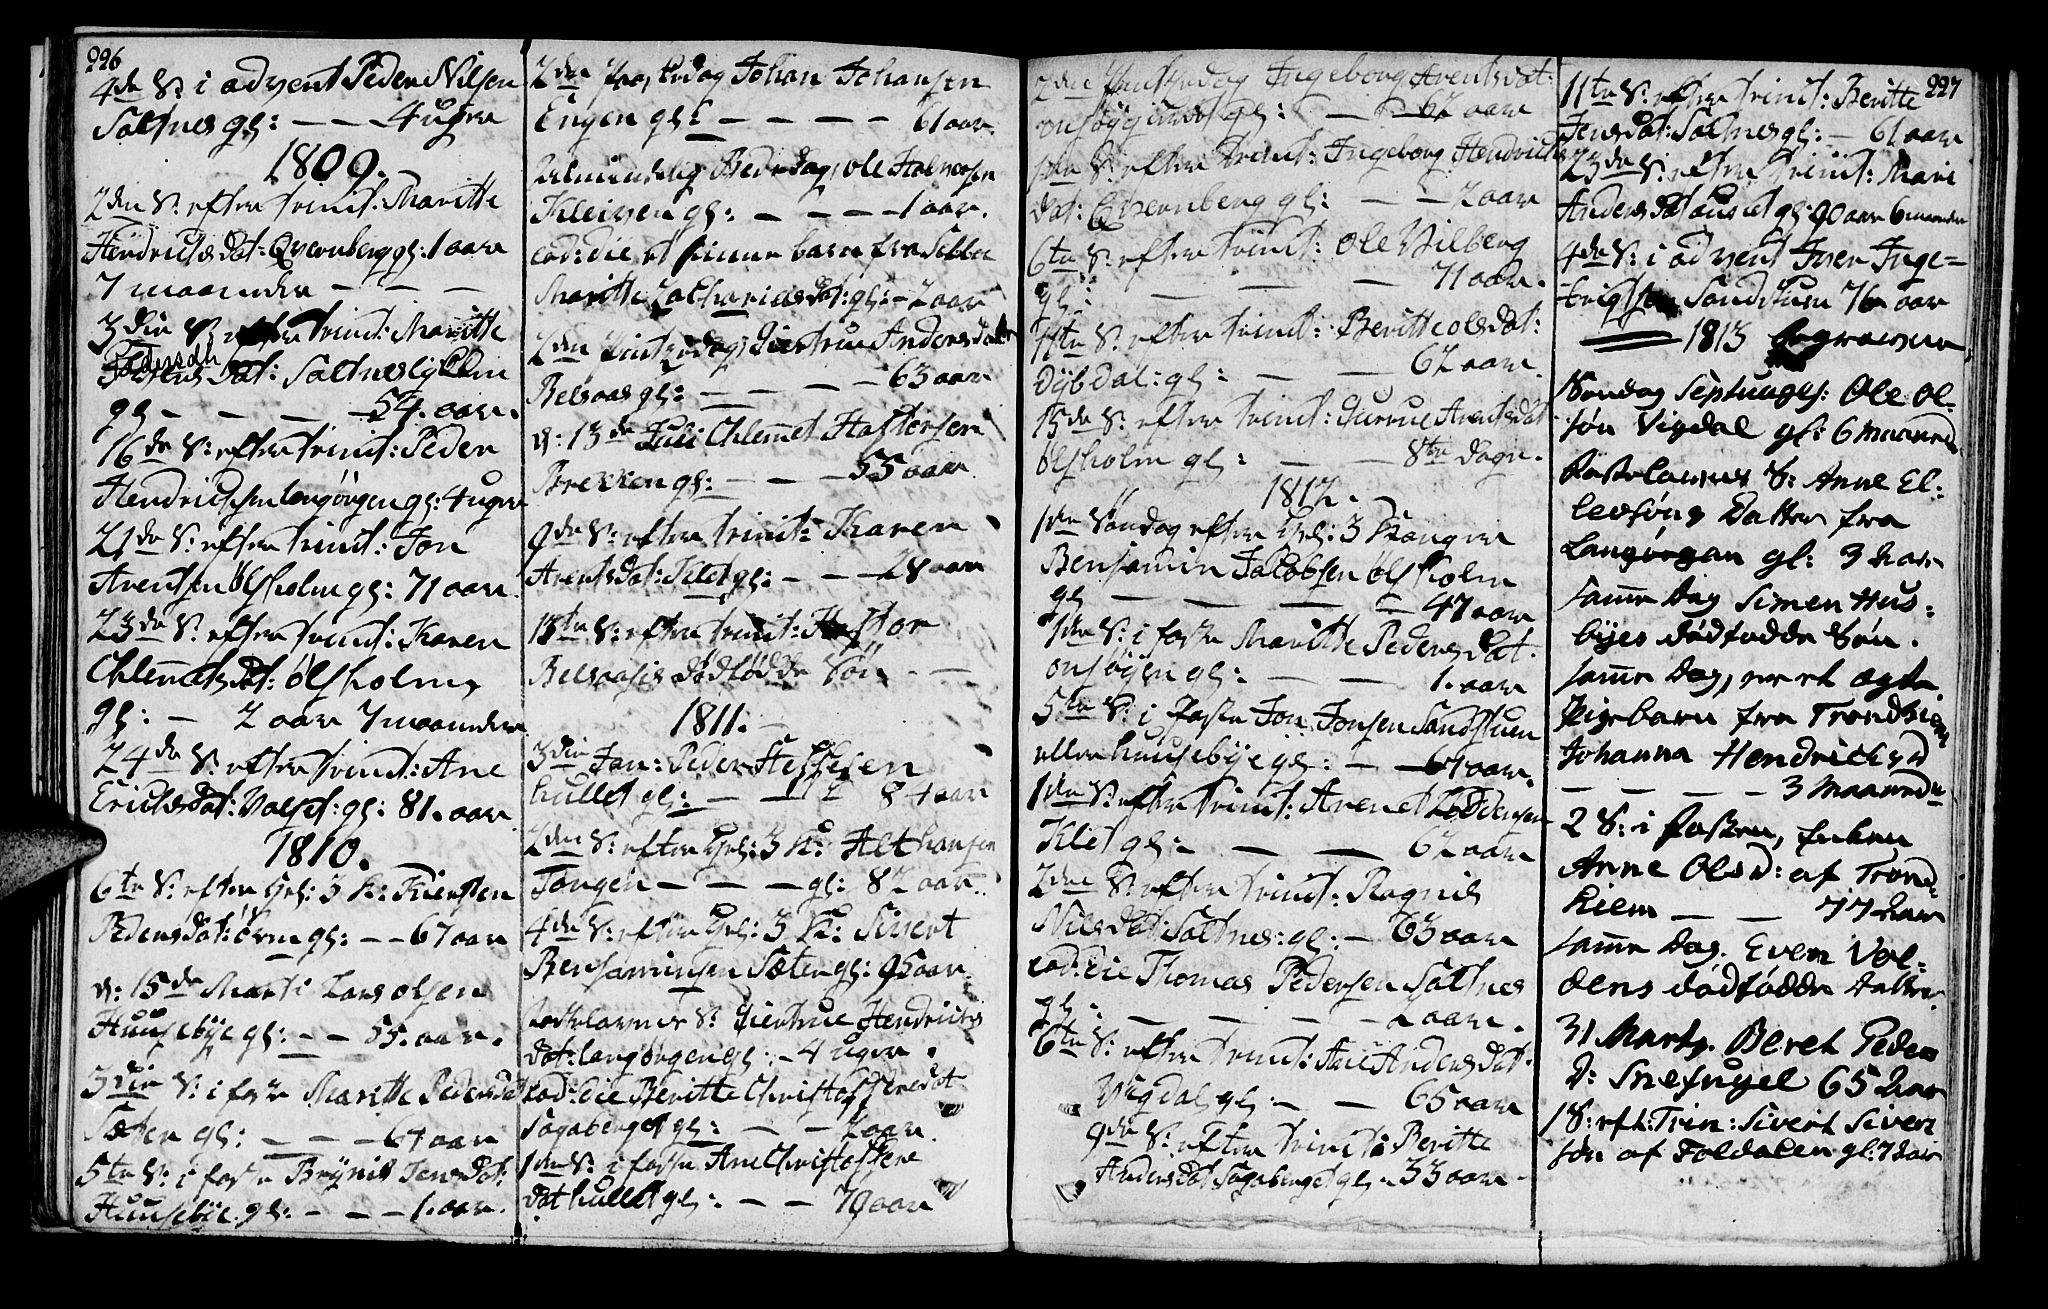 226
4de S: i advent Peder Nilsen
Saltnes gl: — — 4 uger
1809.
2den S: efter trinit: Maritte
Hendrichsdat: Qvernberg gl: 1 aar
7 maaneder — — —
3die S: efter trinit: Maritte
Pedersdt
dat: Saltnes
gl — — — 54. aar.
16de S: efter trinit: Peder
Hendrichsen langørgen gl: 4 uger
21de S: efter trinit: Jon
Arentsen Ølsholm gl: 71 aar.
23de S: efter trinit: Karen
Chlemetsdat: Ølsholm,
gl: — 2 aar 7 maaneder
24de S: efter trinit: Ane
Erichsdat: Valset: gl: 81. aar.
1810.
6te S: efter Hel: 3 K: Kiersten
Pedersdat: gl: — — 67 aar
d: 15de Marti Lars olsen
Huusebye gl: — — 55. aar.
3die S: i faste Maritte Pedersdat
Sæter gl: — — — 64 aar
5te S: i faste Brynil Jensdat:
Huusebye. gl: — — — 1. aar.
2den Paaskedag Johan Johansen
Engen gl: — — — — 61 aar.
Almindelig Bededag, ole Halvorsen
Kleiven gl: — — — — 1 aar.
eod: die et barn fra
Maritte Zachariasdat: gl: — 2 aar
2den pintzedag, Giertrue Andersdatter
Belsaas gl: — — — — 63 aar
d: 13de Juli Chlemet Hastorsen
Brekken gl: — — — 55 aar
9de S: efter trinit: Karen
Arentsdat: Klet gl: — — — 28 aar
18te S: efter trinit: Hastor
Belsaasis dødfødde Søn — —
1811.
3die Jan: Peder Steffesen
hullet gl: — — 84 aar
2den S: efter Hel: 3 K: Alt hansen
Tongen — — — gl: 82 aar.
4de S: efter Hel: 3 K: Sivert
Benjaminsen Sæter gl: 95 aar.
Fastelavens S: Giertrue Hendrichs
dat: langørgen gl: — 4 uger.
eod: die Beritte Christoffersdat
Sagaberget gl: — — 2 aar.
1ste S: i faste Ane Christoffers
dat hullet gl: — — 79 aar
2den Pintzedag Ingeborg Arentsdat:
gl: — — 62 aar
1ste S: efter trinit: Ingeborg Hendrichs
dat: Qvernberg gl: — — 2 aar
6te S: efter trinit: Ole Vilberg
gl: — — — — 71 aar.
11te S: efter trinit: Beritte olsdat:
Dybdal: gl: — — — 62 aar.
15de S: efter trinit: Gurrue Arentsdat
Ølsholm gl: — — 8te dage.
1812.
1ste Søndag efter Hel: 3 Konger
Benjamin Jacobsen Ølsholm
gl — — — — 47 aar
1ste S: i faste Maritte Pedersdat.
gl: — — 1. aar
5te S: i faste Jon Jonsen Sandstuen
eller huusebye gl: — — 61 aar.
1ste S: efter trinit: Arent Loddensen
Klet gl: — — — 62 aar
2den S: efter trinit: Ragnil
Nilsdat: Saltnes: gl: — 63 aar
eod: die Thomas Pedersen Saltnes
gl: — — — — 2 aar.
6te S: efter trinit: Andersdat:
Vigdal gl: — — 65 aar
9de S: efter trinit: Beritte
Andersdat Sagaberget gl — 33 aar.
227
11te S: efter trinit: Beritte
Jensdat: Saltnes gl: — 61 aar
23de S: efter trinit: Mari
Andersdat gl: 90 aar 6 maaneder
4de S: i advent Iver Inge-
brigtsen Sandstuen 76 aar
1813 begravne.
Søndag Septuages: Ole Ol:
søn Vigdal gl: 6 maaneder
Fastelavens S: Anne El:
levsøns Datter fra
Langørgan gl: 3 Aar
samme Dag Simen Hus:
byes dødfødde Søn.
samme Dag, et ægte
Pigebarn fra Trondhiem
Johanna Hendrichsd
— — — — 3 maaneder
2 S: i fasten, Enken
Anne Olsd: af Trond:
hiem — — 77 Aar
samme Dag. Even Vol:
dens dødfødde Datter
31 Marty. Beret Peders
D: Snefugel 65 Aar
1 S: eft: Trin: Sivert Siver
søn af Foldalen gl: 7 Aar